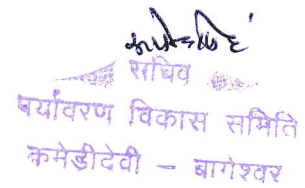 सचिव
पर्यावरण विकास समिति
कमेडीदेवी - बागेश्वर